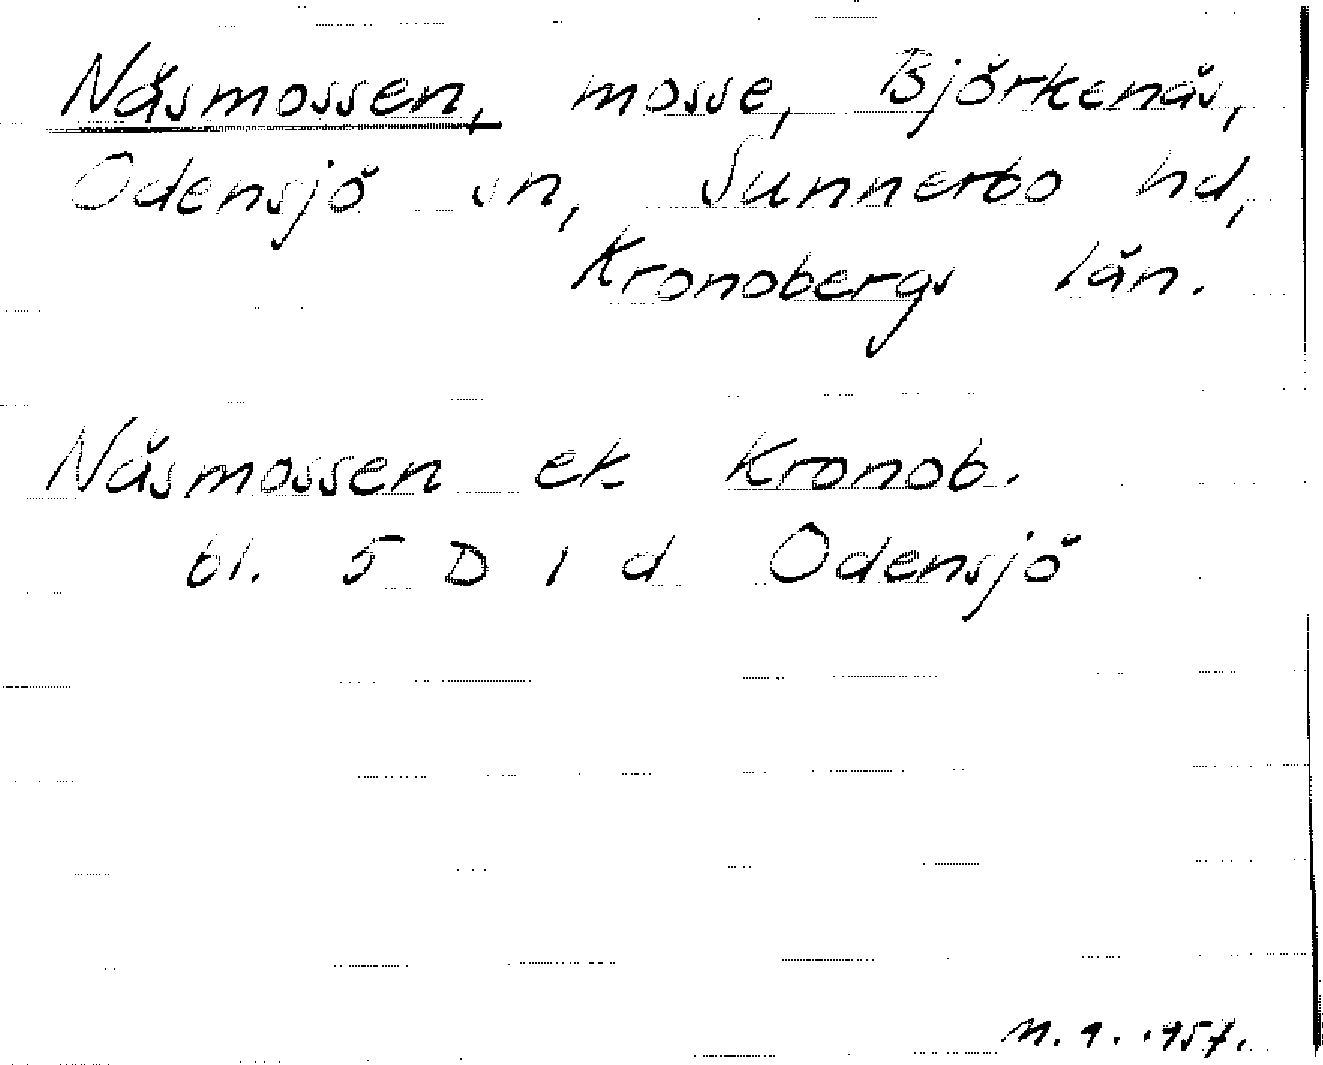 Näsmossen, mosse, Björkenäs,
Odensjö sn, Sunnerbo hd,
Kronobergs län.
Näsmossen ek Kronob.
bl. 5 D 1 d Odensjö
1957.